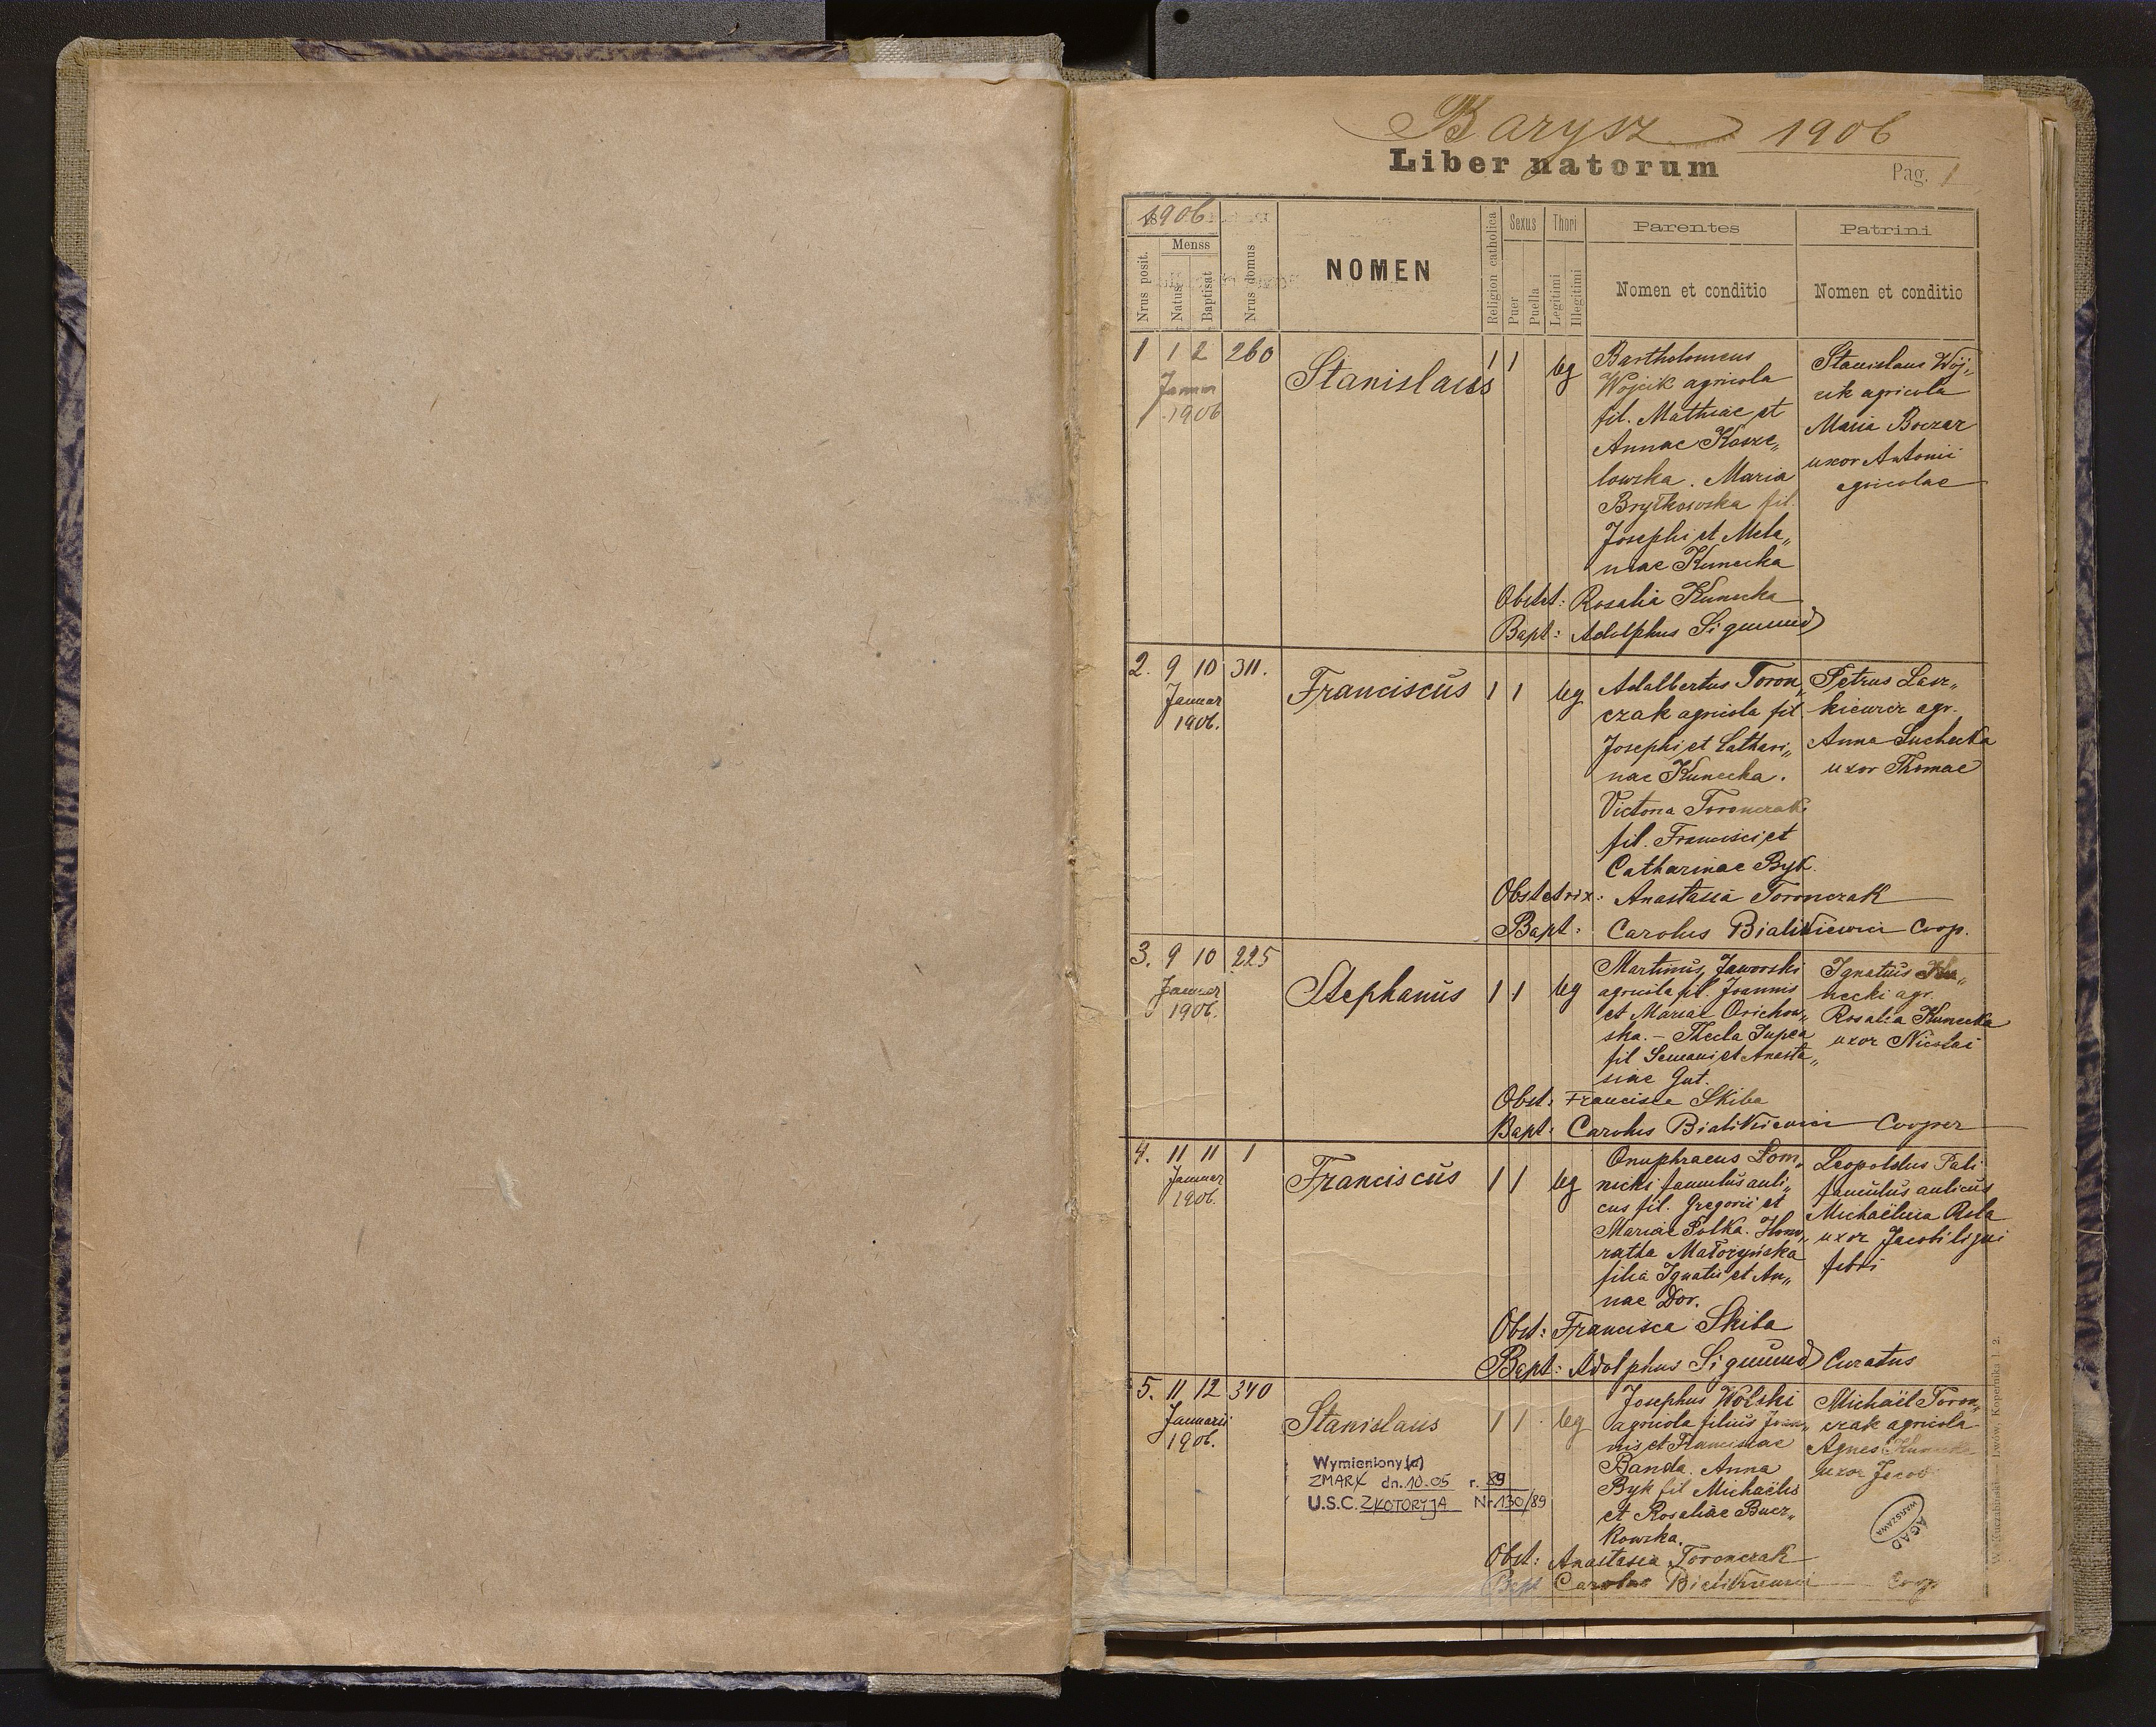 Barysz 1906
Liber natorum
Pag. 1
1906
Nrus posit.
Menss
Natus
Baptisat
Nrus domus
NOMEN
Religion catholica
Sexus
Puer
Puella
Thori
Legitimi
Illegitimi
Parentes
Nomen et conditio
Patrini
Nomen et conditio
1 1 2 260
Januar
1906
Stanislaus
1 1 leg
Bartholomeus
Wojcik agricola
fil. Mathiae et
Annae Kosze„
lowska. Maria
Brytkowska fil.
Josephi et Mela„
niae Kunecka
Stanislaus Wój„
cik agricola
Maria Boczar
uxor Antonii
agricolae
Obstet: Rosalia Kunecka
Bapt: Adolphus Sigmund
2. 9 10 311.
Januar
1906.
Franciscus
1 1 leg
Adalbertus Toron„
czak agricola fil
Josephi et Cathari„
nae Kunecka.
Victoria Toronczak
fil. Francisci et
Catharinae Byk.
Petrus Lasz„
kiewicz agr.
Anna Suchecka
uxor Thomae
Obstetrix: Anastasia Toronczak
Bapt: Carolus Bialikiewicz Coop.
3. 9 10 225
Januar
1906.
Stephanus
1 1 leg
Martinus Jaworski
agricola fil. Joannis
et Mariae Orichow„
ska. – Thecla Jupca
fil Semani et Anasta„
siae Gut.
Ignatius Ku„
necki agr.
Rosalia Kunecka
uxor Nicolai
Obst: Francisca Skiba
Bapt: Carolus Bialikiewicz Cooper
4. 11 11 1
Januar
1906.
Franciscus
1 1 leg
Onuphraeus Lom„
nicki famulus auli„
cus fil. Gregorii et
Mariae Polka. Hono„
ratha Małożyńska
filia Ignatii et An„
nae Dor.
Leopoldus Pali
famulus aulicus
Michaëlina Rela
uxor Jacobi ligni
fabri
Obst: Francisca Skiba
Bapt: Adolphus Sigmund Curatus
5. 11 12 340
Januarii
1906.
Stanislaus
1 1 leg
Josephus Wolski
agricola filius Joan„
nis et Franciscae
Banda. Anna
Byk fil Michaëlis
et Rosaliae Bucz„
kowska.
Michaël Toron„
czak agricola
Agnes Kunecka
uxor Jacob
Wymieniony(a)
ZMARŁ dn. 10.05 r. 89
U.S.C. ZŁOTORYJA Nr 130/89
Obst: Anastasia Toronczak
Bapt Carolus Bialikiewicz Coop
AGAD
WARSZAWA
Lwów, Kopernika 1. 2.